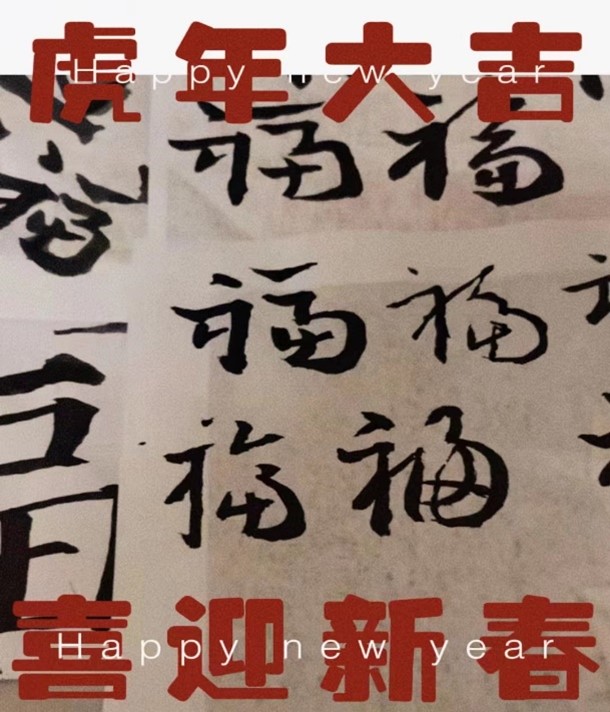 虎年大吉
Happy new year
福 福
福 福
福 福
喜迎新春
Happy new year